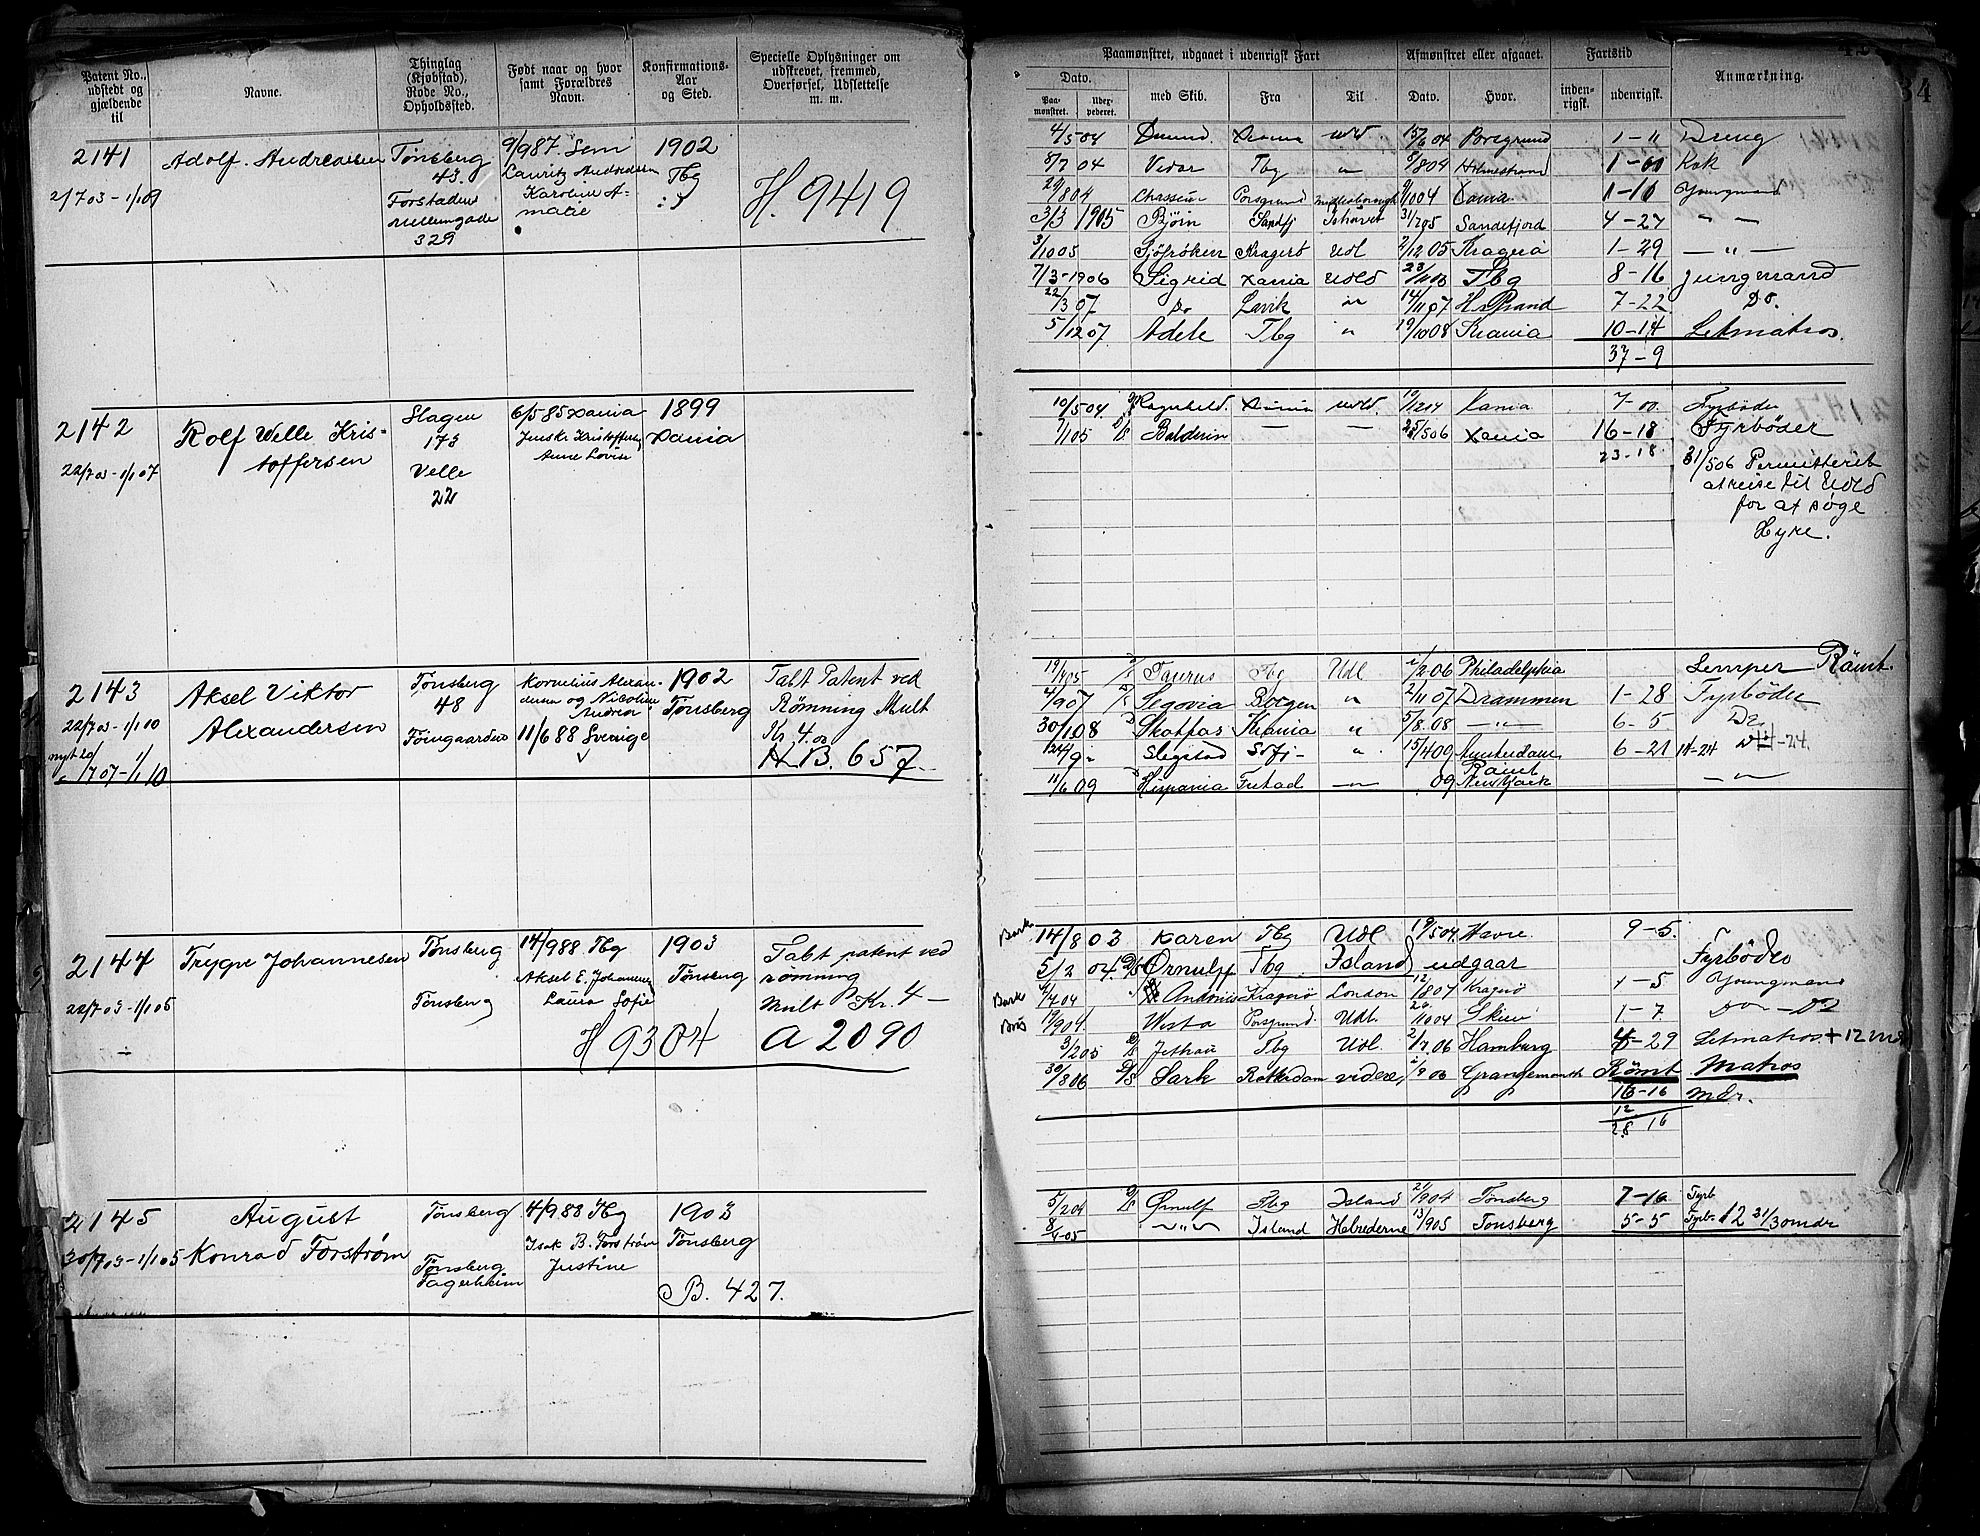 Patent No., udstedt og gjældende til
Navne.
Thinglag (Kjøbstad), Rode No., Opholdssted.
Født naar og hvor samt Forældres Navn.
Konfirmations-Aar og Sted.
Specielle Oplysninger om udskrevet, fremmed, Overførsel, Udslettelse m. m.
2141
2/7 03 - 1/1 09
Adolf. Andreassen
Tønsberg
43.
Forstaden
329
9/9 87 Sem
Lauritz Andreassen
Karoline A-
malie
1902
Tbg
H. 9419
2142
22/7 03 - 1/1 07
Rolf Welle Kris-
toffersen
Slagen
173
Velle
22
6/5 85 Xania
Anne Lovise
1899
Xania
2143
22/7 03 - 1/1 10
nyt 20/7 07 - 1/1 10
Aksel Viktor
Alexandersen
Tønsberg
48
Føingaarden
Kornelius Alexan-
dersen og Nicoline
Andrea
11/6 88 Sverige
1902
Tønsberg
Tabt Patent ved
Rømning Mult
Kr. 4.00
H. B. 657.
2144
22/7 03 - 1/1 05
Trygve Johannesen
Tønsberg
Tønsberg
14/9 88 Tbg
Aksel E. Johannesen
Laura Sofie
1903
Tønsberg
Tabt patent ved
rømning
Mult Kr. 4 —
H 9304 A 2090
2145
30/7 03 - 1/1 05
August
Konrad Forstrøm
Tønsberg
Tønsberg
Fagerheim
4/9 88 Tbg
Isak B. Forstrøm
Justine
1903
Tønsberg
B. 427.
34
Paamønstret, udgaaet i udenrigsk Fart
Afmønstret eller afgaaet.
Fartstid
Anmærkning.
Dato.
Paa-mønstret.
med Skib.
Fra
Til
Dato.
Hvor.
inden-rigsk.
udenrigsk.
4/5 04 Xania Udl 15/6 04 Porsgrund 1 - " Dreng
8/7 04 Vidar Tbg " 9/8 04 Holmestrand 1-00 Kok
29/8 04 Porsgrund Middlesborough 9/10 04 Xania. 1-10 Youngmand
3/3 1905 Bjørn Sandfj Ishavet 31/7 05 Sandefjord 4-27 " —
3/10 05 Kragerø Udl 2/12 05 Kragerø 1-29 — " —
7/3-1906 Sigrid Xania Udld 23/11 06 Tbg 8-16 jungmand
22/3 07 Do Larvik " 14/11 07 7-22 Do.
5/12 07 Adele Tbg " 19/10 08 Krania 10-14 Letmatros.
37-9
10/5 04. Ragnhild. Xania Udld. Xania 7-00. Fyrbøder
7/1 05 D/S Balderin — — 25/5 06 Xania 16-18 Fyrbøder
23-18.
31/5 06 Permitteret
at reise til Udld
for at søge
Hyre.
19/7 05 Taurus Tbg Udl 2/2 06 Philadelphia Semper Rømt.
4/9 07 Segovia Bergen " 2/11 07 Drammen 1-28 Fyrbøder
30/1 08 Skotfos Krania " 5/8. 08 — " — 6-5 Do
Slegstad " 15/4 09 Amsterdam 6-21 14-24
Rømt
11/6 09 Hispania — " — 09 New York — " —
Bark 14/8 03 Karen Tbg Udl 19/5 04. Havre. 9-5.
5/2 04. D/S Ørnulf Tbg. Island udgaar Fyrbøder
Bark 4/7 04 Kragerø London 12/8 04 Kragerø 1-5 Youngmand
19/9 04 Porsgrund. Udl. Skien 1-7
3/2 05 D/S Tbg Udl. 2/7. 06 Hamburg 29 Letmatros + 12 mdr
30/8 06 D/S Sark Rotterdam videre, 2/9 06 Grangemouth Rømt Matros
16-16 mdr.
12
28 16
5/2 04 D/S Ørnulf Tbg Island 21/9 04 Tønsberg 7-16 Fyrb.
8/4-05 — " — Island Hebriderne 13/9 05 Tønsberg 5-5 Fyrb. 12 21/30 mdr